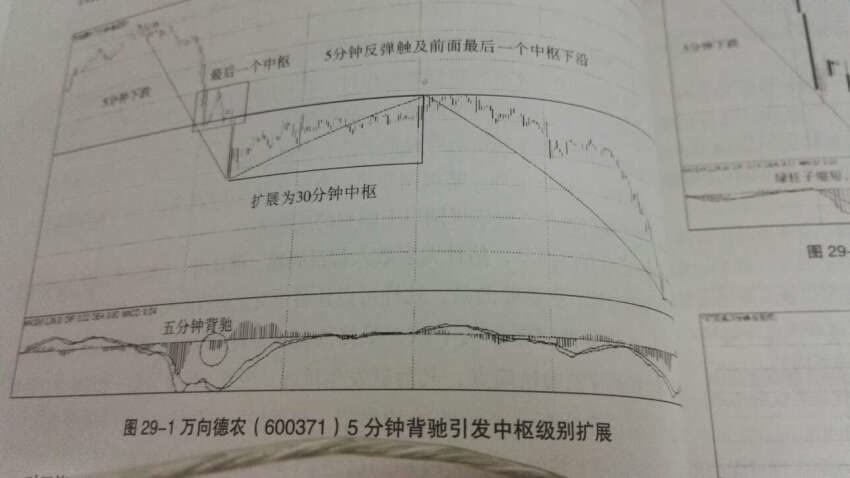 最后一个中枢
5分钟反弹触及前面最后一个中枢下沿
5分钟下跌
扩展为30分钟中枢
五分钟背驰
图 29-1 万向德农（600371）5 分钟背驰引发中枢级别扩展
5分钟下跌
图 29-